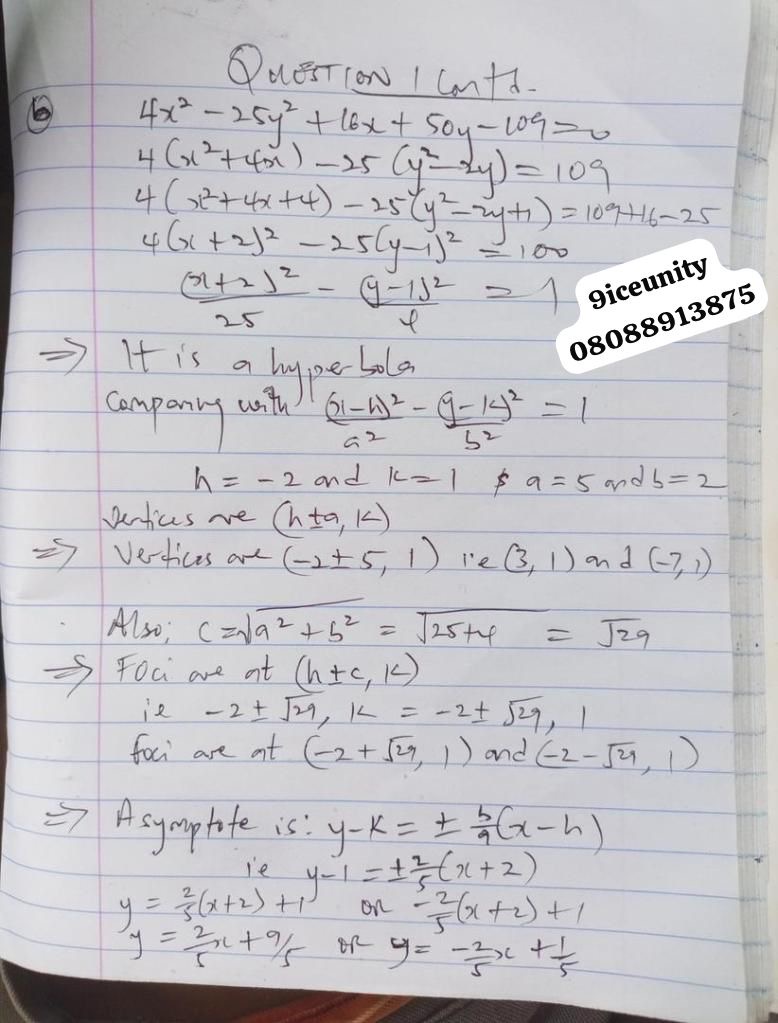 QUESTION 1 Contd.
(b) 4x² - 25y² + 16x + 50y - 109 = 0
4(x² + 4x) - 25(y² - 2y) = 109
4(x² + 4x + 4) - 25(y² - 2y + 1) = 109 + 16 - 25
4(x + 2)² - 25(y - 1)² = 100
(x + 2)²/25 - (y - 1)²/4 = 1
9iceunity
08088913875
⇒ It is a hyperbola
Comparing with (x - h)²/a² - (y - k)²/b² = 1
h = -2 and k = 1 & a = 5 and b = 2
Vertices are (h ± a, k)
⇒ Vertices are (-2 ± 5, 1) i.e (3, 1) and (-7, 1)
Also; c = √a² + b² = √25 + 4 = √29
⇒ Foci are at (h ± c, k)
ie -2 ± √29, k = -2 ± √29, 1
foci are at (-2 + √29, 1) and (-2 - √29, 1)
⇒ Asymptote is: y - k = ± b/a (x - h)
ie y - 1 = ± 2/5 (x + 2)
y = 2/5 (x + 2) + 1 or -2/5 (x + 2) + 1
y = 2/5 x + 9/5 or y = -2/5 x + 1/5